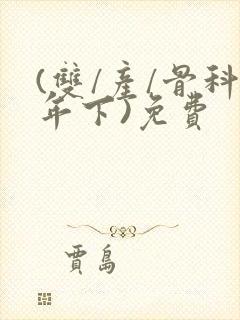 (雙/產/骨科
年下)免費
賈島